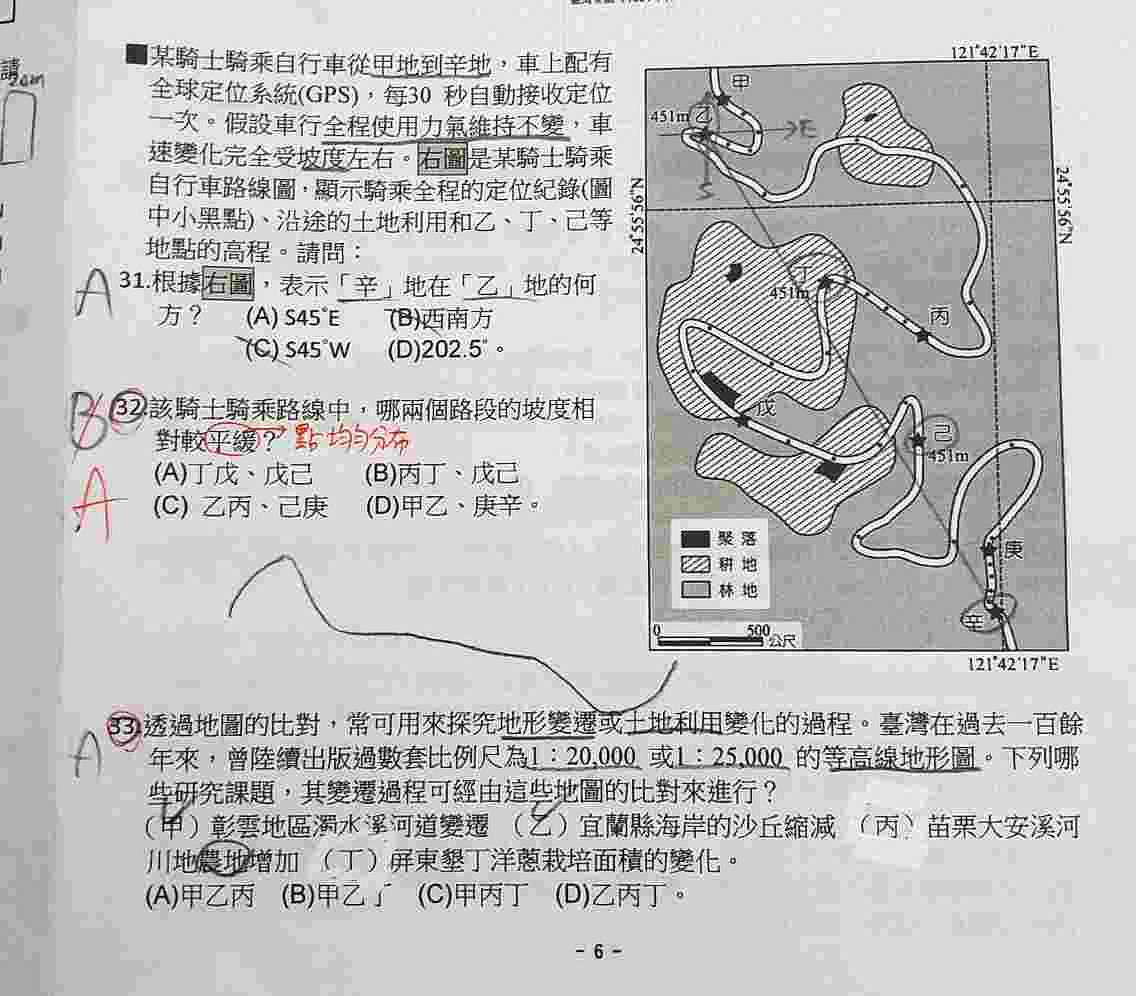 ■某騎士騎乘自行車從甲地到辛地，車上配有
全球定位系統(GPS)，每30 秒自動接收定位
一次。假設車行全程使用力氣維持不變，車
速變化完全受坡度左右。右圖是某騎士騎乘
自行車路線圖，顯示騎乘全程的定位紀錄(圖
中小黑點)、沿途的土地利用和乙、丁、己等
地點的高程。請問：
A 31.根據右圖，表示「辛」地在「乙」地的何
方？ (A) S45°E (B)西南方
(C) S45°W (D)202.5°。
B 32.該騎士騎乘路線中，哪兩個路段的坡度相
對較平緩？→點均勻分布
(A)丁戊、戊己 (B)丙丁、戊己
A (C) 乙丙、己庚 (D)甲乙、庚辛。
121°42'17"E
甲
451m 乙
E
S
24°55'56"N
24°55'56"N
丁
451m
丙
戊
己
451m
庚
辛
聚 落
耕 地
林 地
0 500
公尺
121°42'17"E
33.透過地圖的比對，常可用來探究地形變遷或土地利用變化的過程。臺灣在過去一百餘
A 年來，曾陸續出版過數套比例尺為1：20,000 或1：25,000 的等高線地形圖。下列哪
些研究課題，其變遷過程可經由這些地圖的比對來進行？
（甲）彰雲地區濁水溪河道變遷 （乙）宜蘭縣海岸的沙丘縮減 （丙）苗栗大安溪河
川地農地增加 （丁）屏東墾丁洋蔥栽培面積的變化。
(A)甲乙丙 (B)甲乙丁 (C)甲丙丁 (D)乙丙丁。
- 6 -